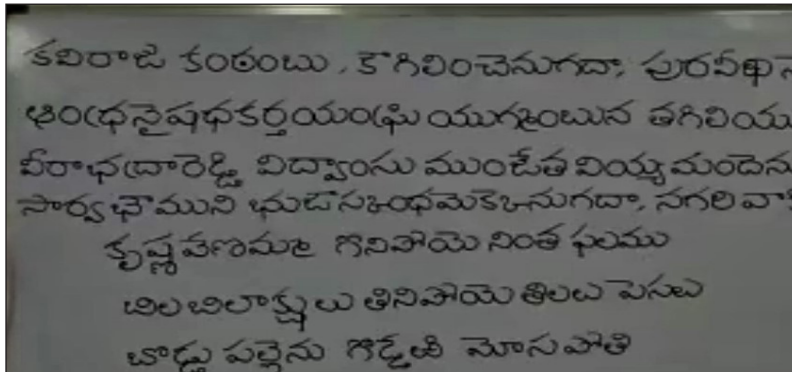 కవిరాజ కంఠంబు, కౌగిలించెనుగదా, పురవీథినె
ఆంధ్రనైషధకర్తయంఘ్రి యుగ్మంబున తగిలియు
వీరభద్రారెడ్డి విద్వాంసు ముంజేత వియ్యమందెను
సార్వభౌముని భుజాస్కంధమెక్కెనుగదా, నగరివా
కృష్ణవేణమ్మ గొనిపోయె నింత ఫలము
బిలబిలాక్షులు తినిపోయె తిలలు పెసలు
బొడ్డు పల్లెను గొడ్డేఱి మోసపోతి